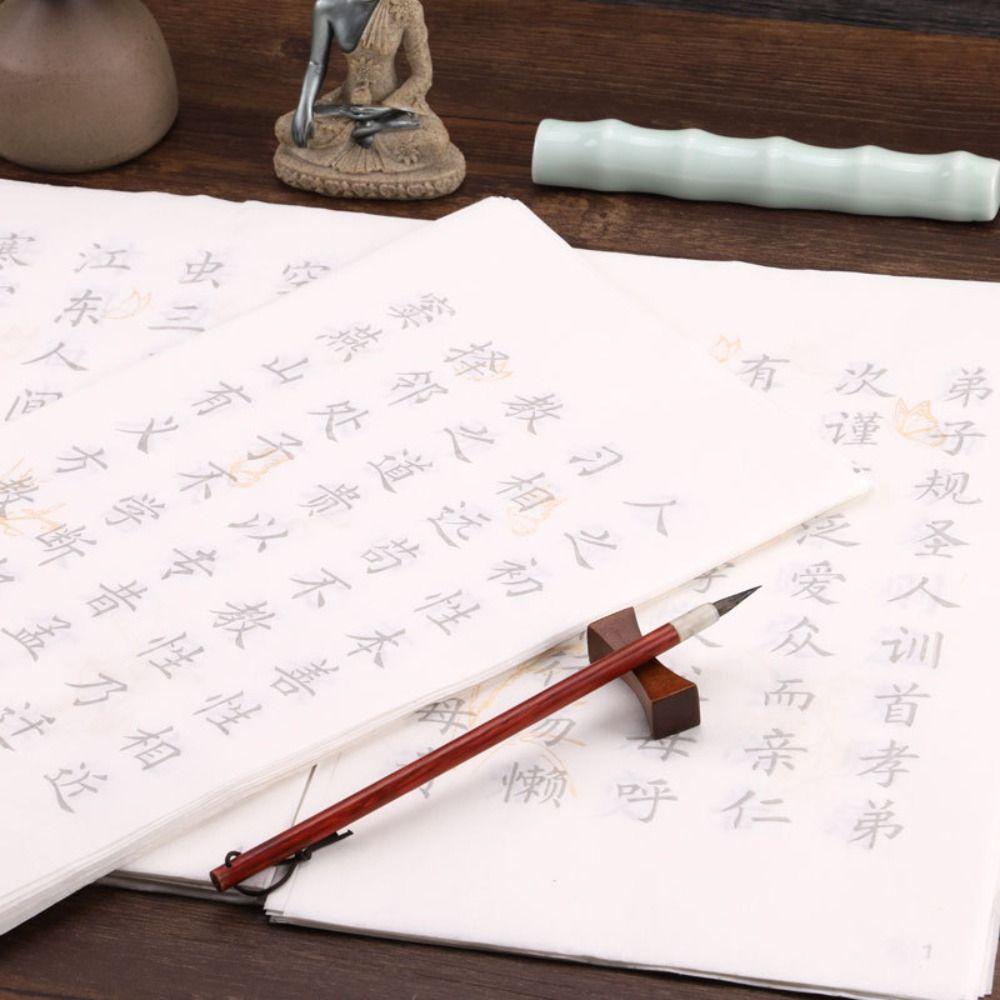 弟子规圣人训首孝弟
次谨泛爱众而亲仁
有母呼
勿懒
母
人之初性本善性相近
习相远苟不教性乃迁
教之道贵以专昔孟
择邻处子不学断
窦燕山有义方教
虫三
江东人间
寒
1